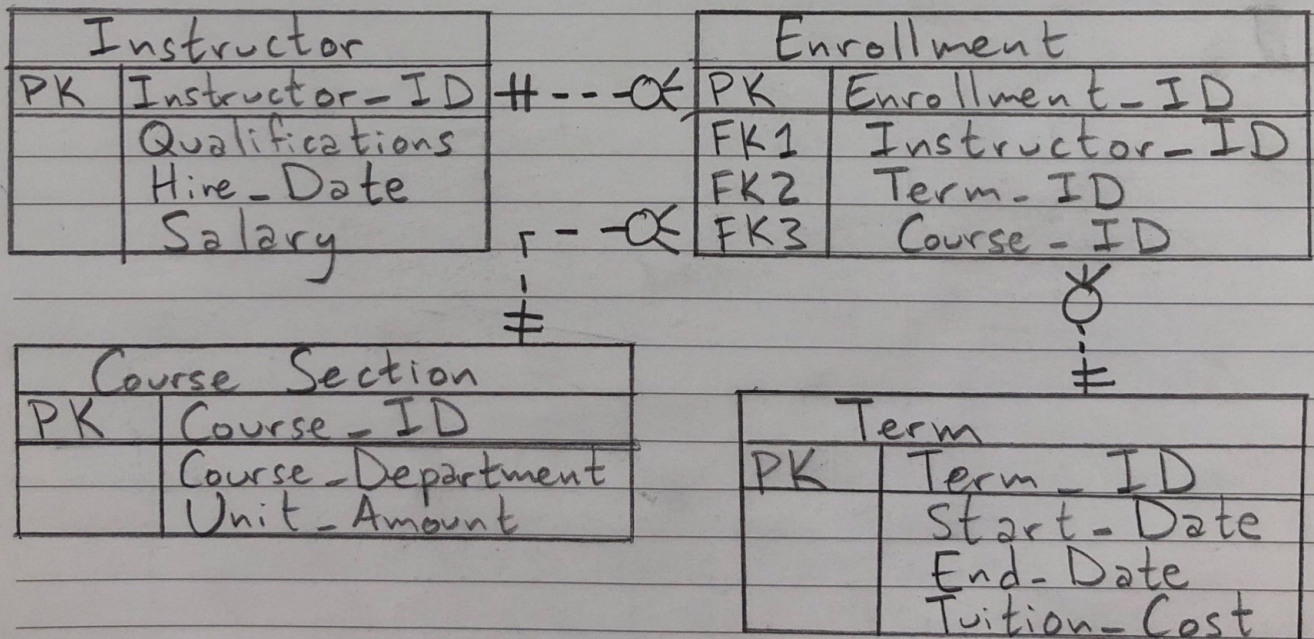 Instructor
PK Instructor_ID
Qualifications
Hire_Date
Salary
Enrollment
PK Enrollment_ID
FK1 Instructor_ID
FK2 Term_ID
FK3 Course_ID
Course Section
PK Course_ID
Course_Department
Unit_Amount
Term
PK Term_ID
Start_Date
End_Date
Tuition_Cost